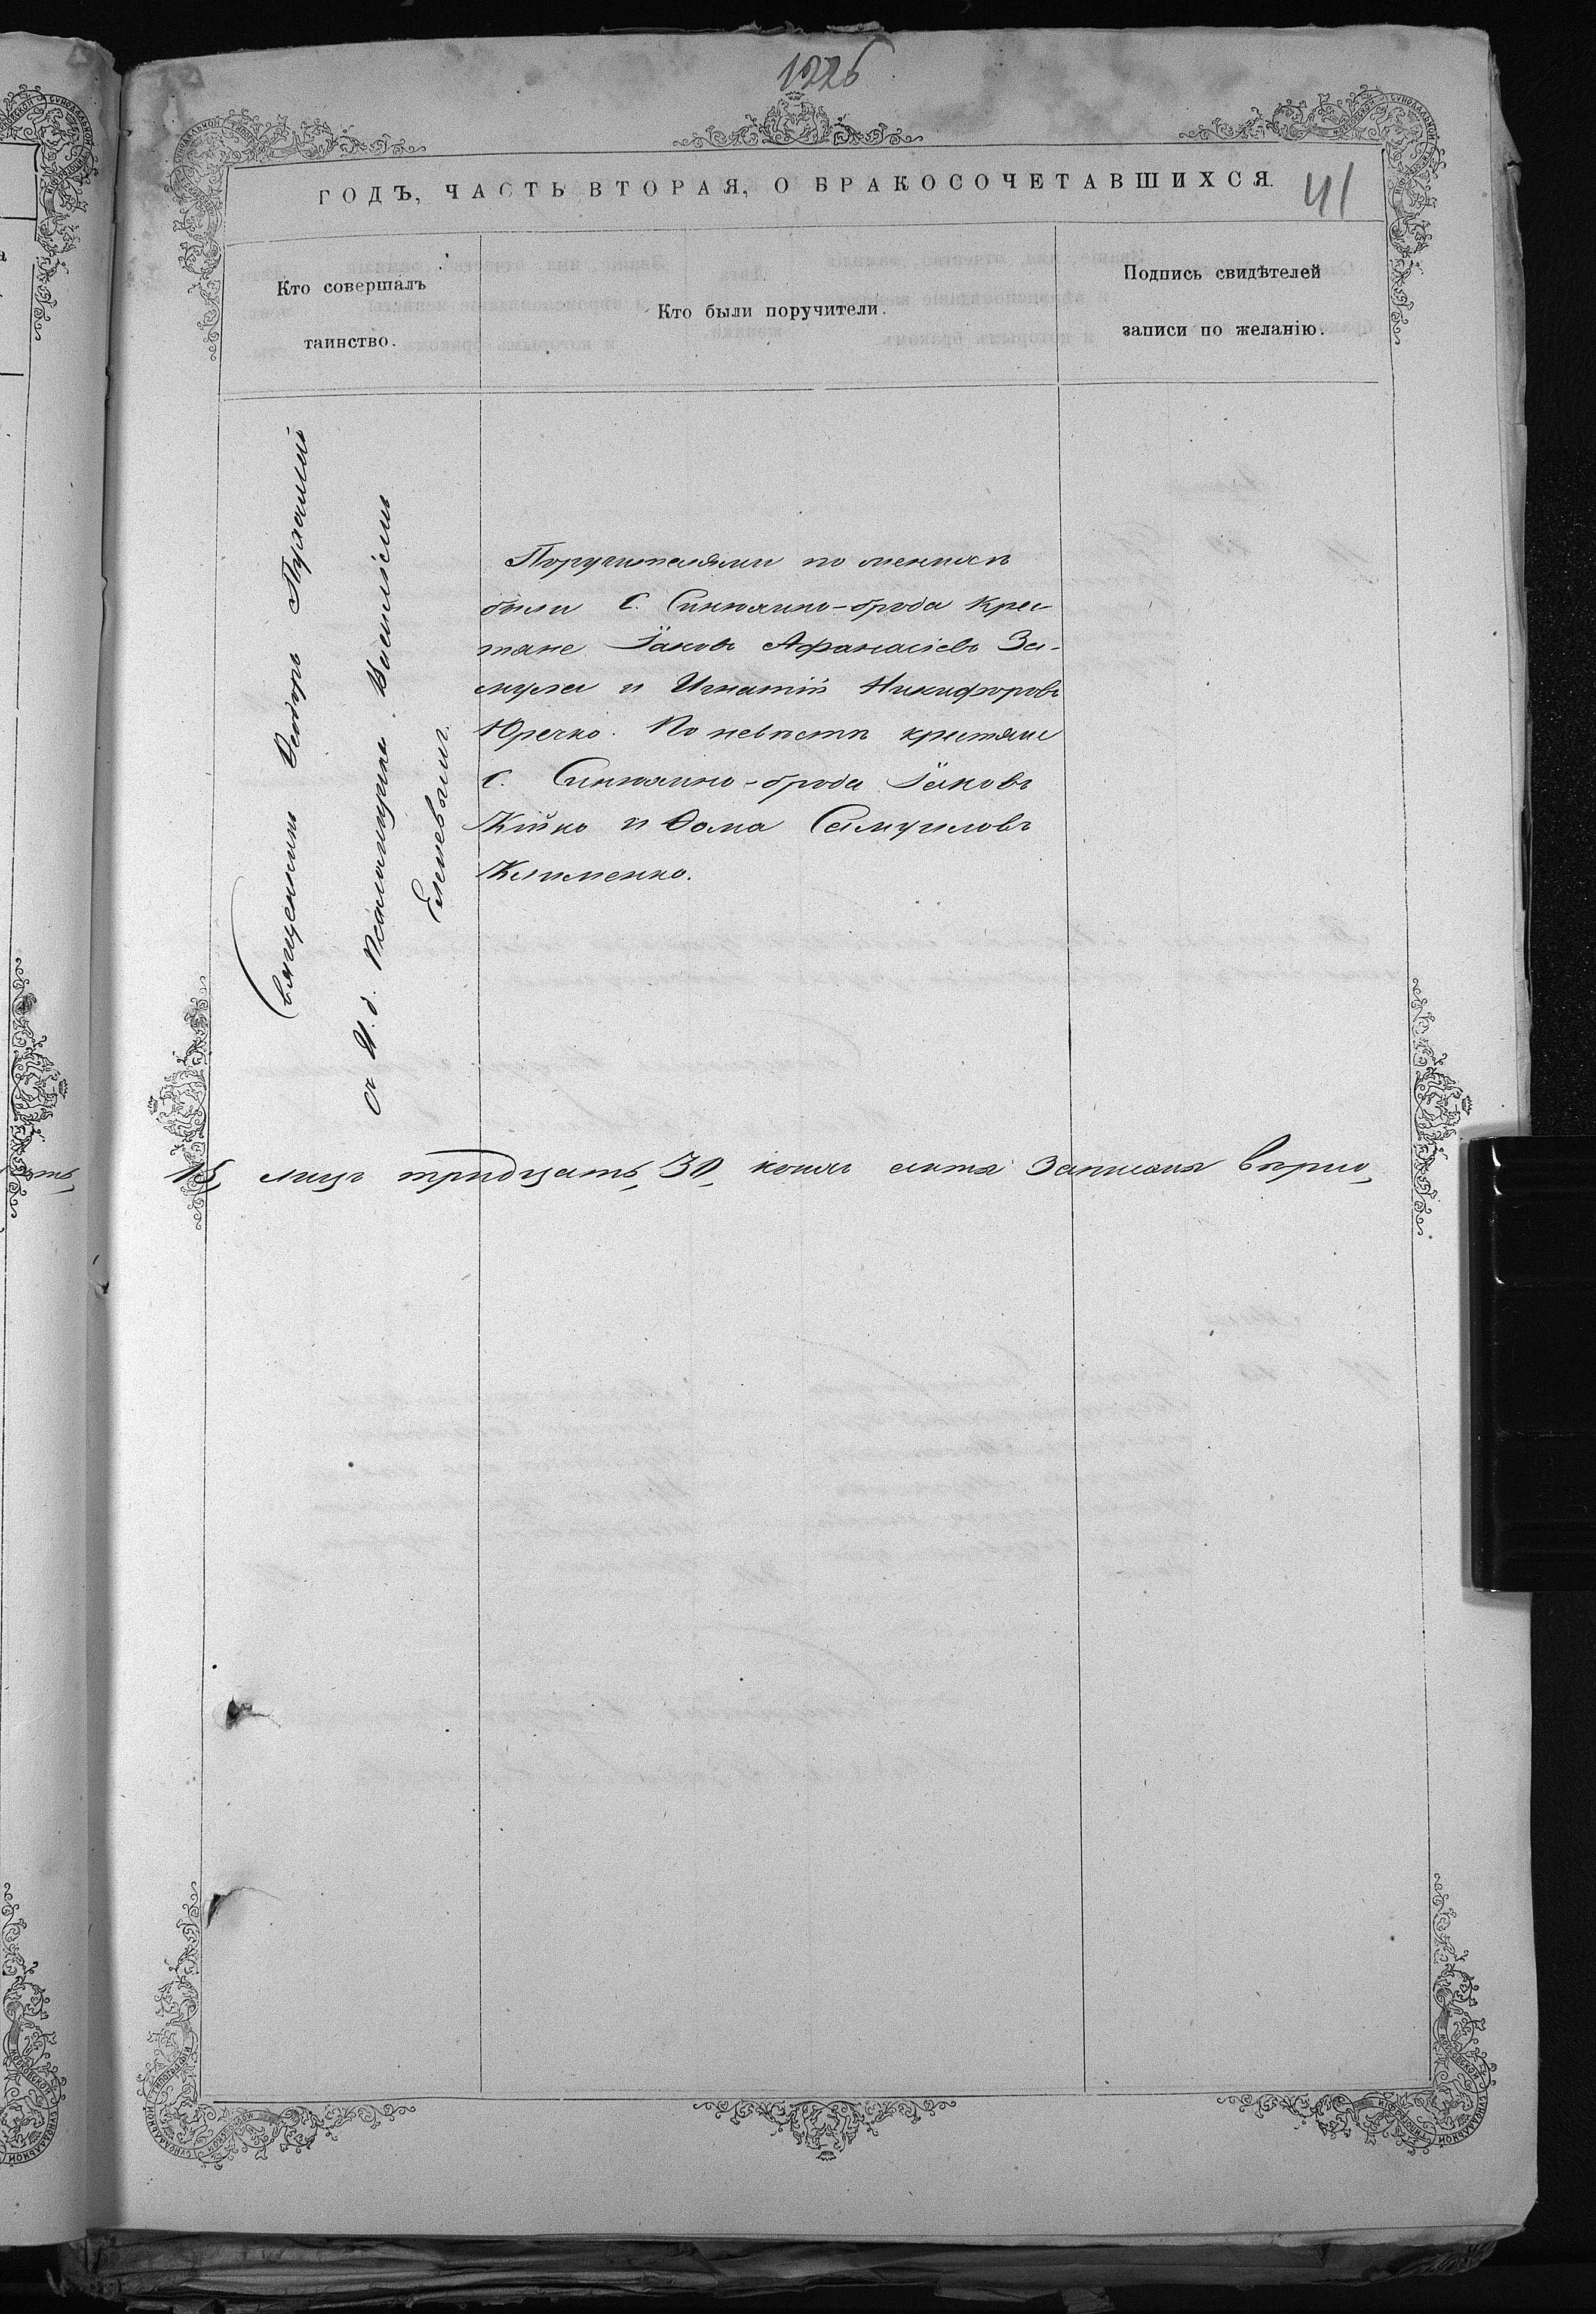 1226
ГОДЪ, ЧАСТЬ ВТОРАЯ, О БРАКОСОЧЕТАВШИХСЯ.
41
Кто совершалъ
таинство.
Кто были поручители.
Подпись свидѣтелей
записи по желанію.
Священникъ Ѳеодоръ
съ И. д. Псаломщика Василіемъ
Поручителями по женихѣ
были С. Синюхино-брода крес
тяне Іаковъ Афанасіевъ За-
и Игнатій Никифоровъ
Юречко. По невѣстѣ крестяне
С. Синюхино-брода Іаковъ
Кійко и Ѳома Самуиловъ
Клименко.
лицъ тридцать, 30, коихъ записана вѣрно,